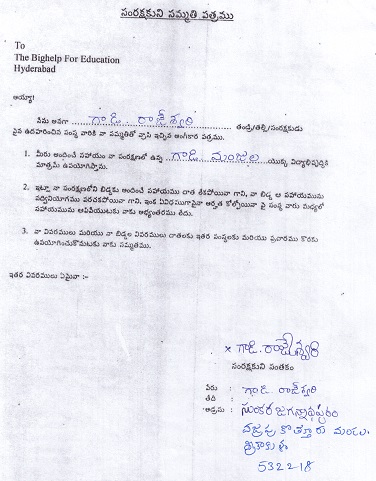 సంరక్షకుని సమ్మతి పత్రము
To
The Bighelp For Education
Hyderabad
అయ్యా!
నేను అనగా గాడి. రాజేశ్వరి తండ్రి/తల్లి/సంరక్షకుడు
పైన ఉదహరించిన సంస్థ వారికి నా సమ్మతితో వ్రాసి ఇచ్చిన అంగీకార పత్రము.
1. మీరు అందించే సహాయం నా సంరక్షణలో ఉన్న గాడి. మంజుల యొక్క విద్యాభివృద్ధికి
మాత్రమే ఉపయోగిస్తాను.
2. ఇట్లా నా సంరక్షణలోని బిడ్డకు అందించే సహాయము దాత లేకపోయినా గాని, నా బిడ్డ ఆ సహాయమును
సద్వినియోగము పరచకపోయినా గాని, ఇంక ఏవిధముగానైనా అర్హత కోల్పోయినా పై సంస్థ వారు మధ్యలో
సహాయమును ఆపివేయుటకు నాకు అభ్యంతరము లేదు.
3. నా వివరములు మరియు నా బిడ్డల వివరములు దాతలకు ఇతర సంస్థలకు మరియు ప్రచారము కొరకు
ఉపయోగించుకొనుటకు నాకు సమ్మతము.
ఇతర వివరములు ఏమైనా :-
x గాడి. రాజేశ్వరి
సంరక్షకుని సంతకం
పేరు : గాడి రాజేశ్వరి
తేది :
అడ్రసు : సుంకర జగన్నాధపురం
వజ్రపు కొత్తూరు మండలం.
శ్రీకాకుళం
532218